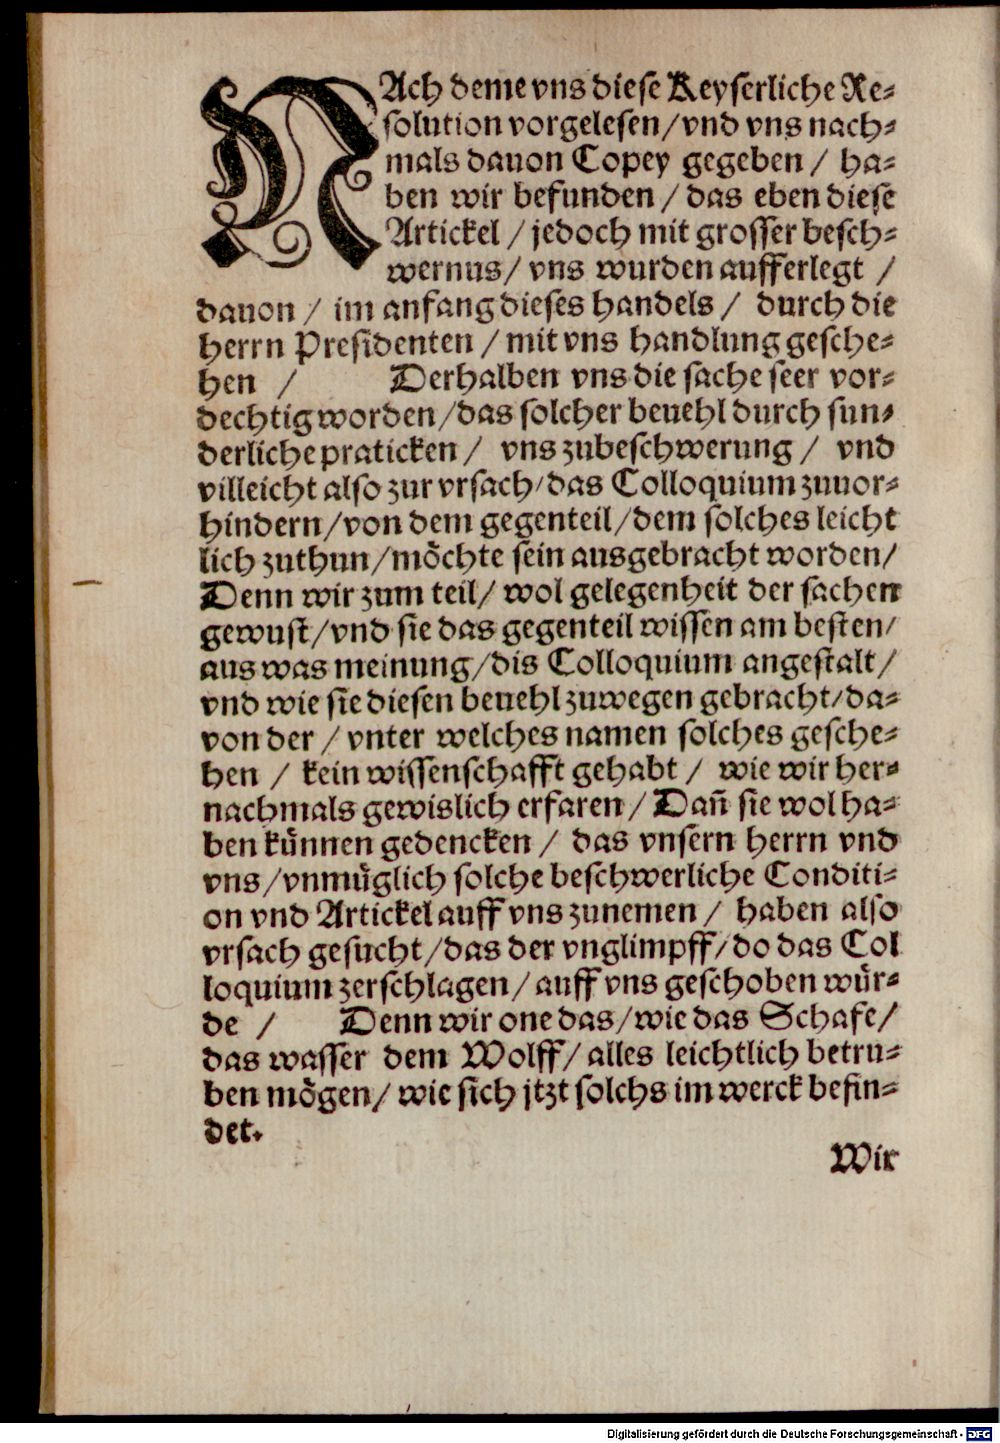 NAch deme vns diese Keyserliche Re⸗
solution vorgelesen/vnd vns nach⸗
mals dauon Copey gegeben / ha⸗
ben wir befunden / das eben diese
Artickel / jedoch mit grosser besch⸗
wernus/ vns wurden aufferlegt /
dauon / im anfang dieses handels / durch die
herrn Presidenten / mit vns handlung gesche⸗
hen / Derhalben vns die sache seer vor⸗
dechtig worden/das solcher beuehl durch sun⸗
derliche praticken / vns zubeschwerung / vnd
villeicht also zur vrsach/das Colloquium zuuor⸗
hindern/von dem gegenteil/dem solches leicht
lich zuthun/möchte sein ausgebracht worden/
Denn wir zum teil/ wol gelegenheit der sachen
gewust/vnd sie das gegenteil wissen am besten/
aus was meinung/dis Colloquium angestalt/
vnd wie sie diesen beuehl zuwegen gebracht/da⸗
von der / vnter welches namen solches gesche⸗
hen / kein wissenschafft gehabt / wie wir her⸗
nachmals gewislich erfaren / Dañ sie wol ha⸗
ben künnen gedencken / das vnsern herrn vnd
vns/vnmüglich solche beschwerliche Conditi⸗
on vnd Artickel auff vns zunemen / haben also
vrsach gesucht/das der vnglimpff/do das Col
loquium zerschlagen/auff vns geschoben wür⸗
de / Denn wir one das/wie das Schafe/
das wasser dem Wolff/alles leichtlich betru⸗
ben mögen/ wie sich jtzt solchs im werck befin⸗
det.
Wir
Digitalisierung gefördert durch die Deutsche Forschungsgemeinschaft - DFG